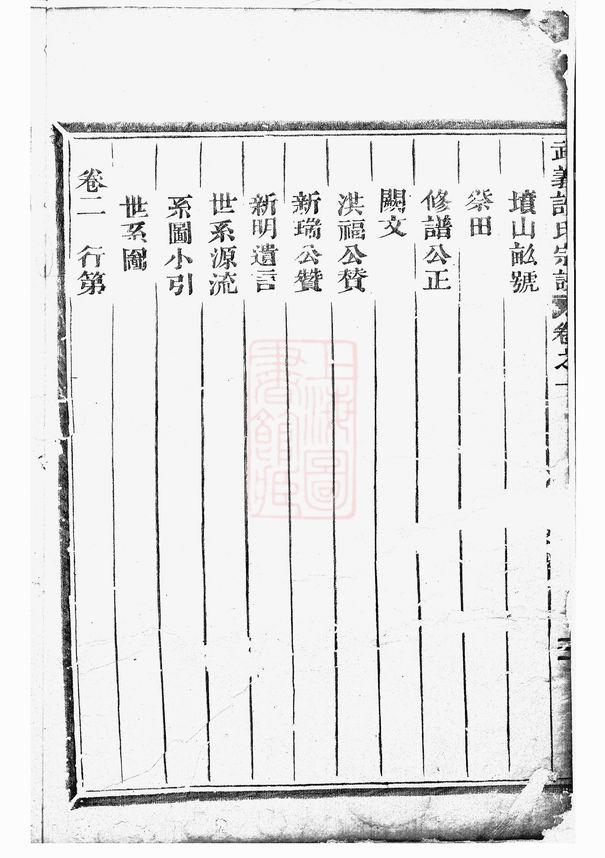 武義許氏宗譜 卷之一
墳山畝號
祭田
修譜公正
闕文
洪福公贊
新瑞公贊
新明遺言
世系源流
系圖小引
世系圖
卷二 行第
上海圖書館藏